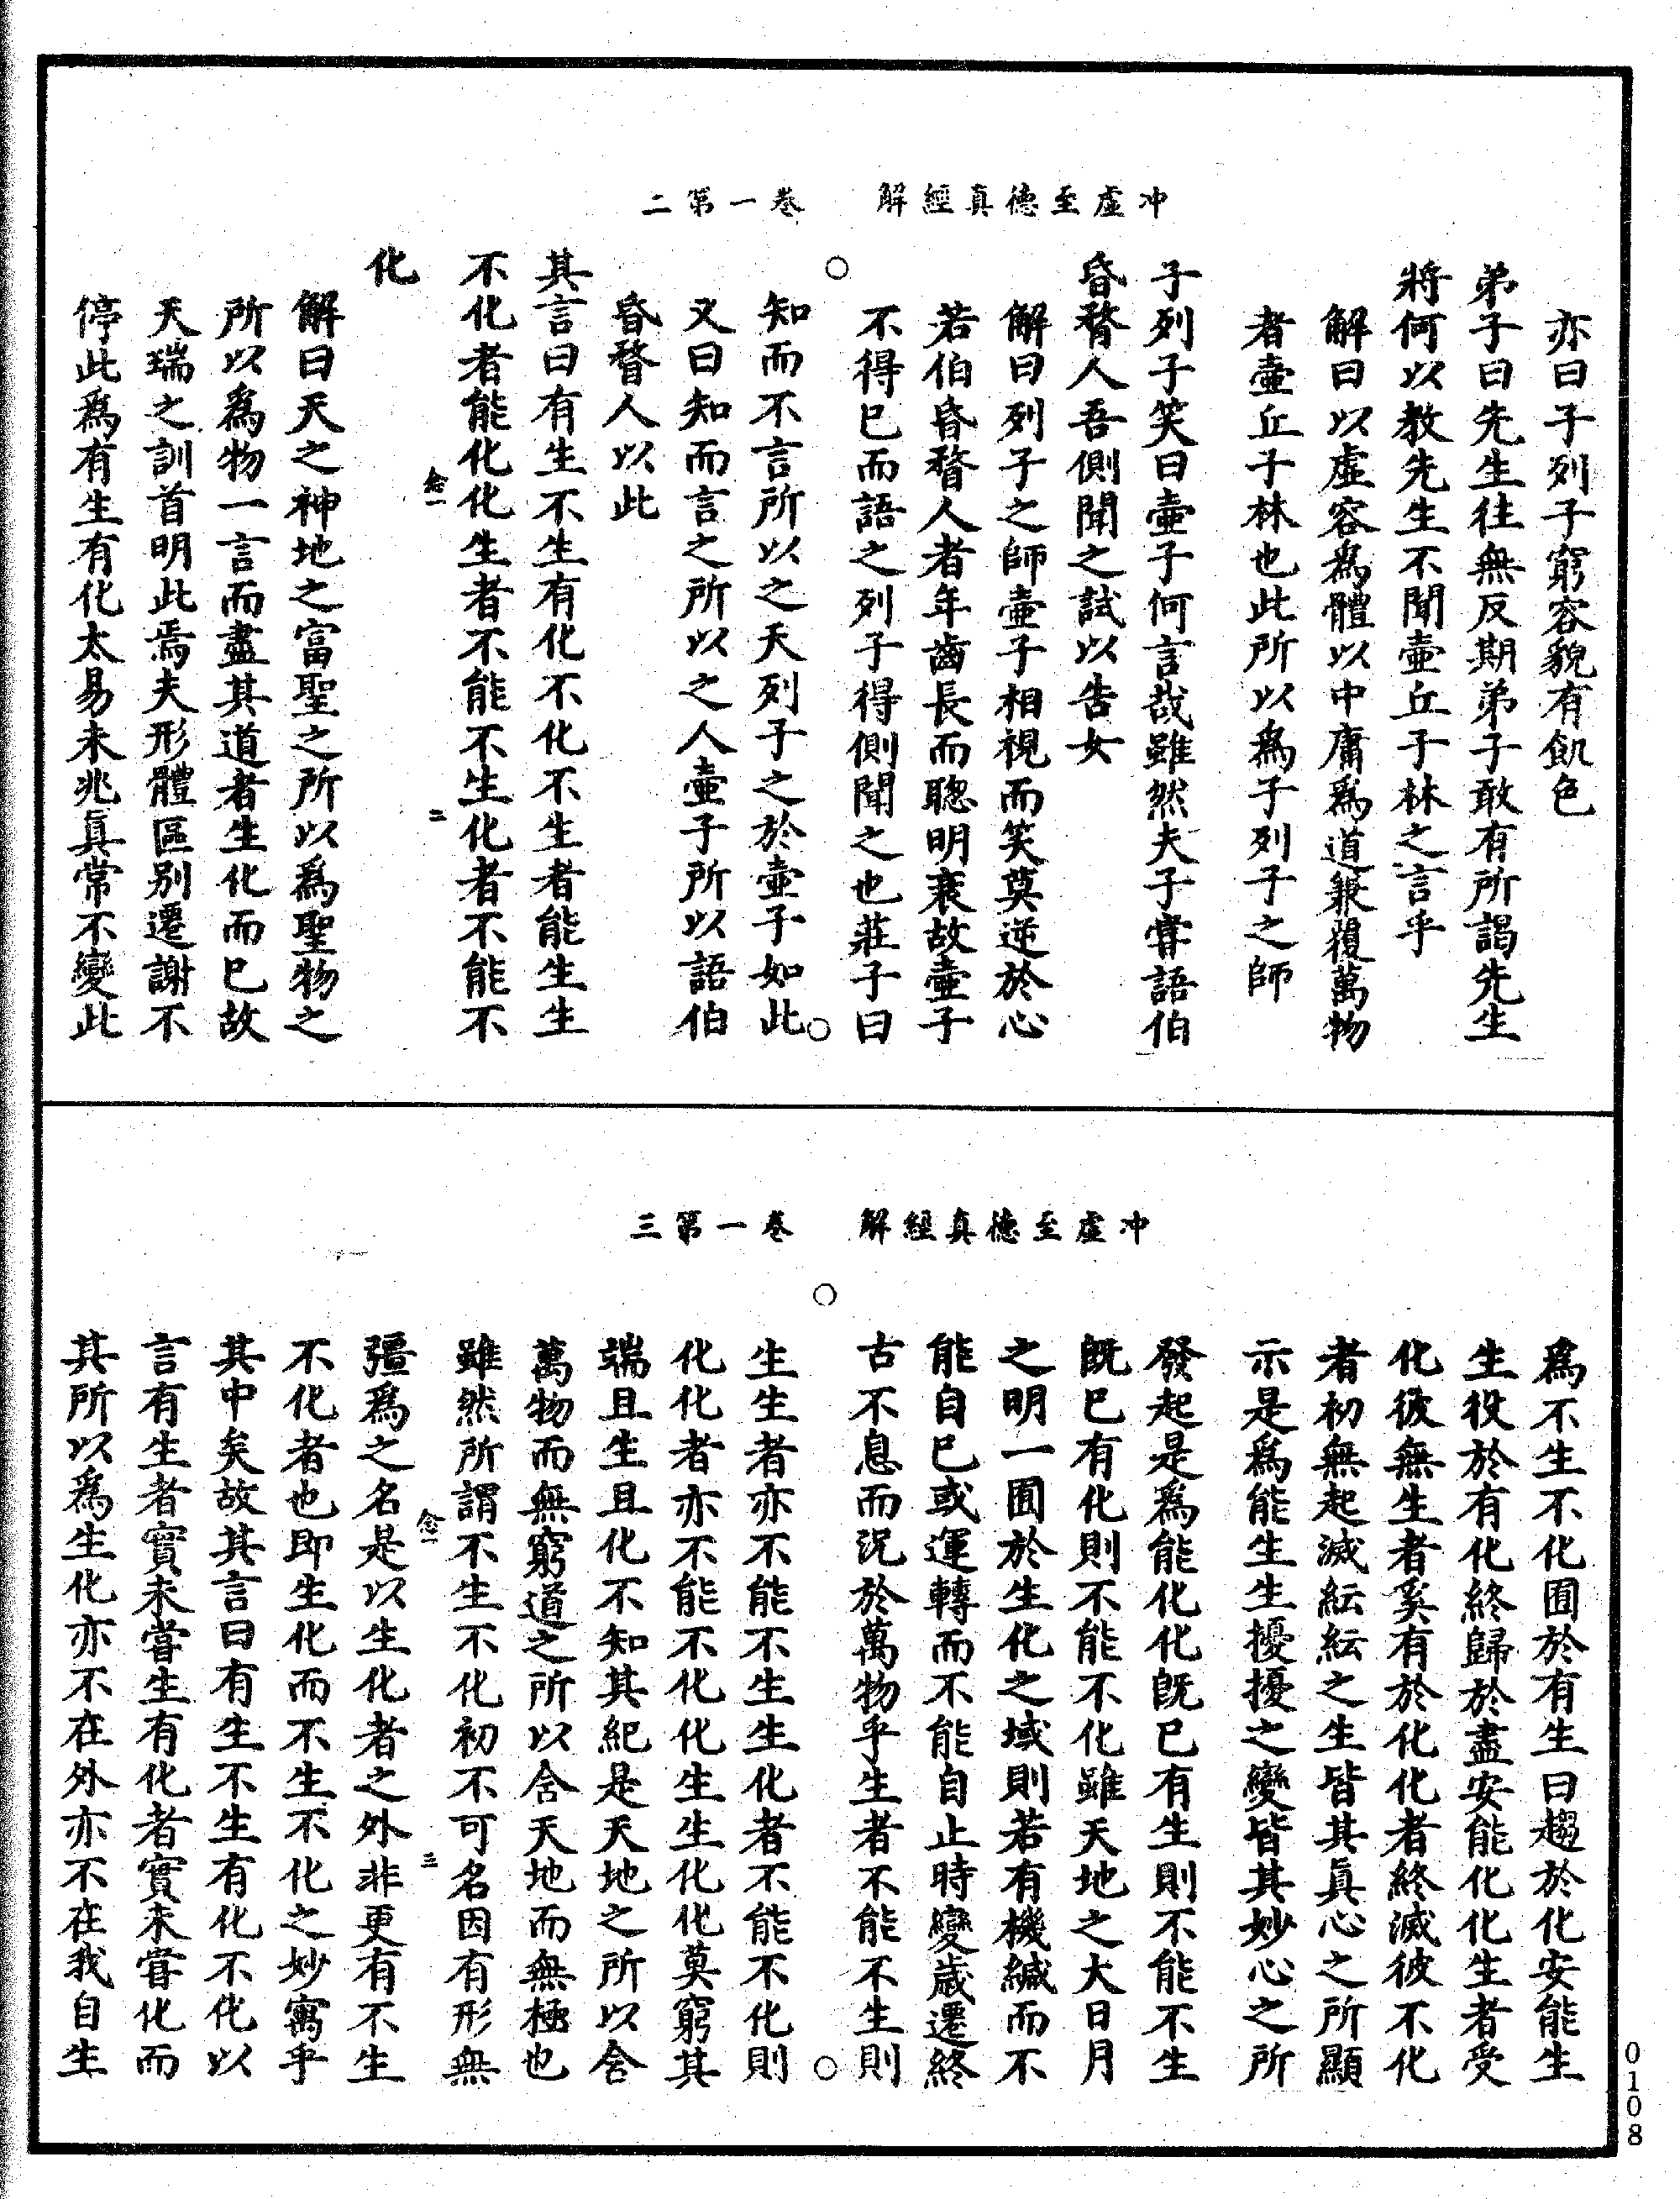 冲虛至德真經解　卷一第二
亦曰子列子窮容貌有飢色
弟子曰先生往無反期弟子敢有所謁先生
將何以教先生不聞壺丘子林之言乎
解曰以虛容爲體以中庸爲道兼覆萬物
者壺丘子林也此所以爲子列子之師
子列子笑曰壺子何言哉雖然夫子嘗語伯
昏瞀人吾側聞之試以告女
解曰列子之師壺子相視而笑莫逆於心
若伯昏瞀人者年齒長而聰明衰故壺子
不得已而語之列子得側聞之也莊子曰
知而不言所以之天列子之於壺子如此
又曰知而言之所以之人壺子所以語伯
昏瞀人以此
其言曰有生不生有化不化不生者能生生
不化者能化化生者不能不生化者不能不
念一　二
化
解曰天之神地之富聖之所以爲聖物之
所以爲物一言而盡其道者生化而已故
天瑞之訓首明此焉夫形體區别遷謝不
停此爲有生有化太易未兆眞常不變此
冲虛至德真經解　卷一第三
爲不生不化囿於有生曰趨於化安能生
生役於有化終歸於盡安能化化生者受
化彼無生者奚有於化化者終滅彼不化
者初無起滅紜紜之生皆其眞心之所顯
示是爲能生生擾擾之變皆其妙心之所
發起是爲能化化旣已有生則不能不生
旣已有化則不能不化雖天地之大日月
之明一囿於生化之域則若有機緘而不
能自已或運轉而不能自止時變歲遷終
古不息而況於萬物乎生者不能不生則
生生者亦不能不生生化者不能不化則
化化者亦不能不化化生生化化莫窮其
端且生且化不知其紀是天地之所以含
萬物而無窮道之所以含天地而無極也
雖然所謂不生不化初不可名因有形無
念一　三
彊爲之名是以生化者之外非更有不生
不化者也即生化而不生不化之妙寓乎
其中矣故其言曰有生不生有化不化以
言有生者實未嘗生有化者實未嘗化而
其所以爲生化亦不在外亦不在我自生
0108